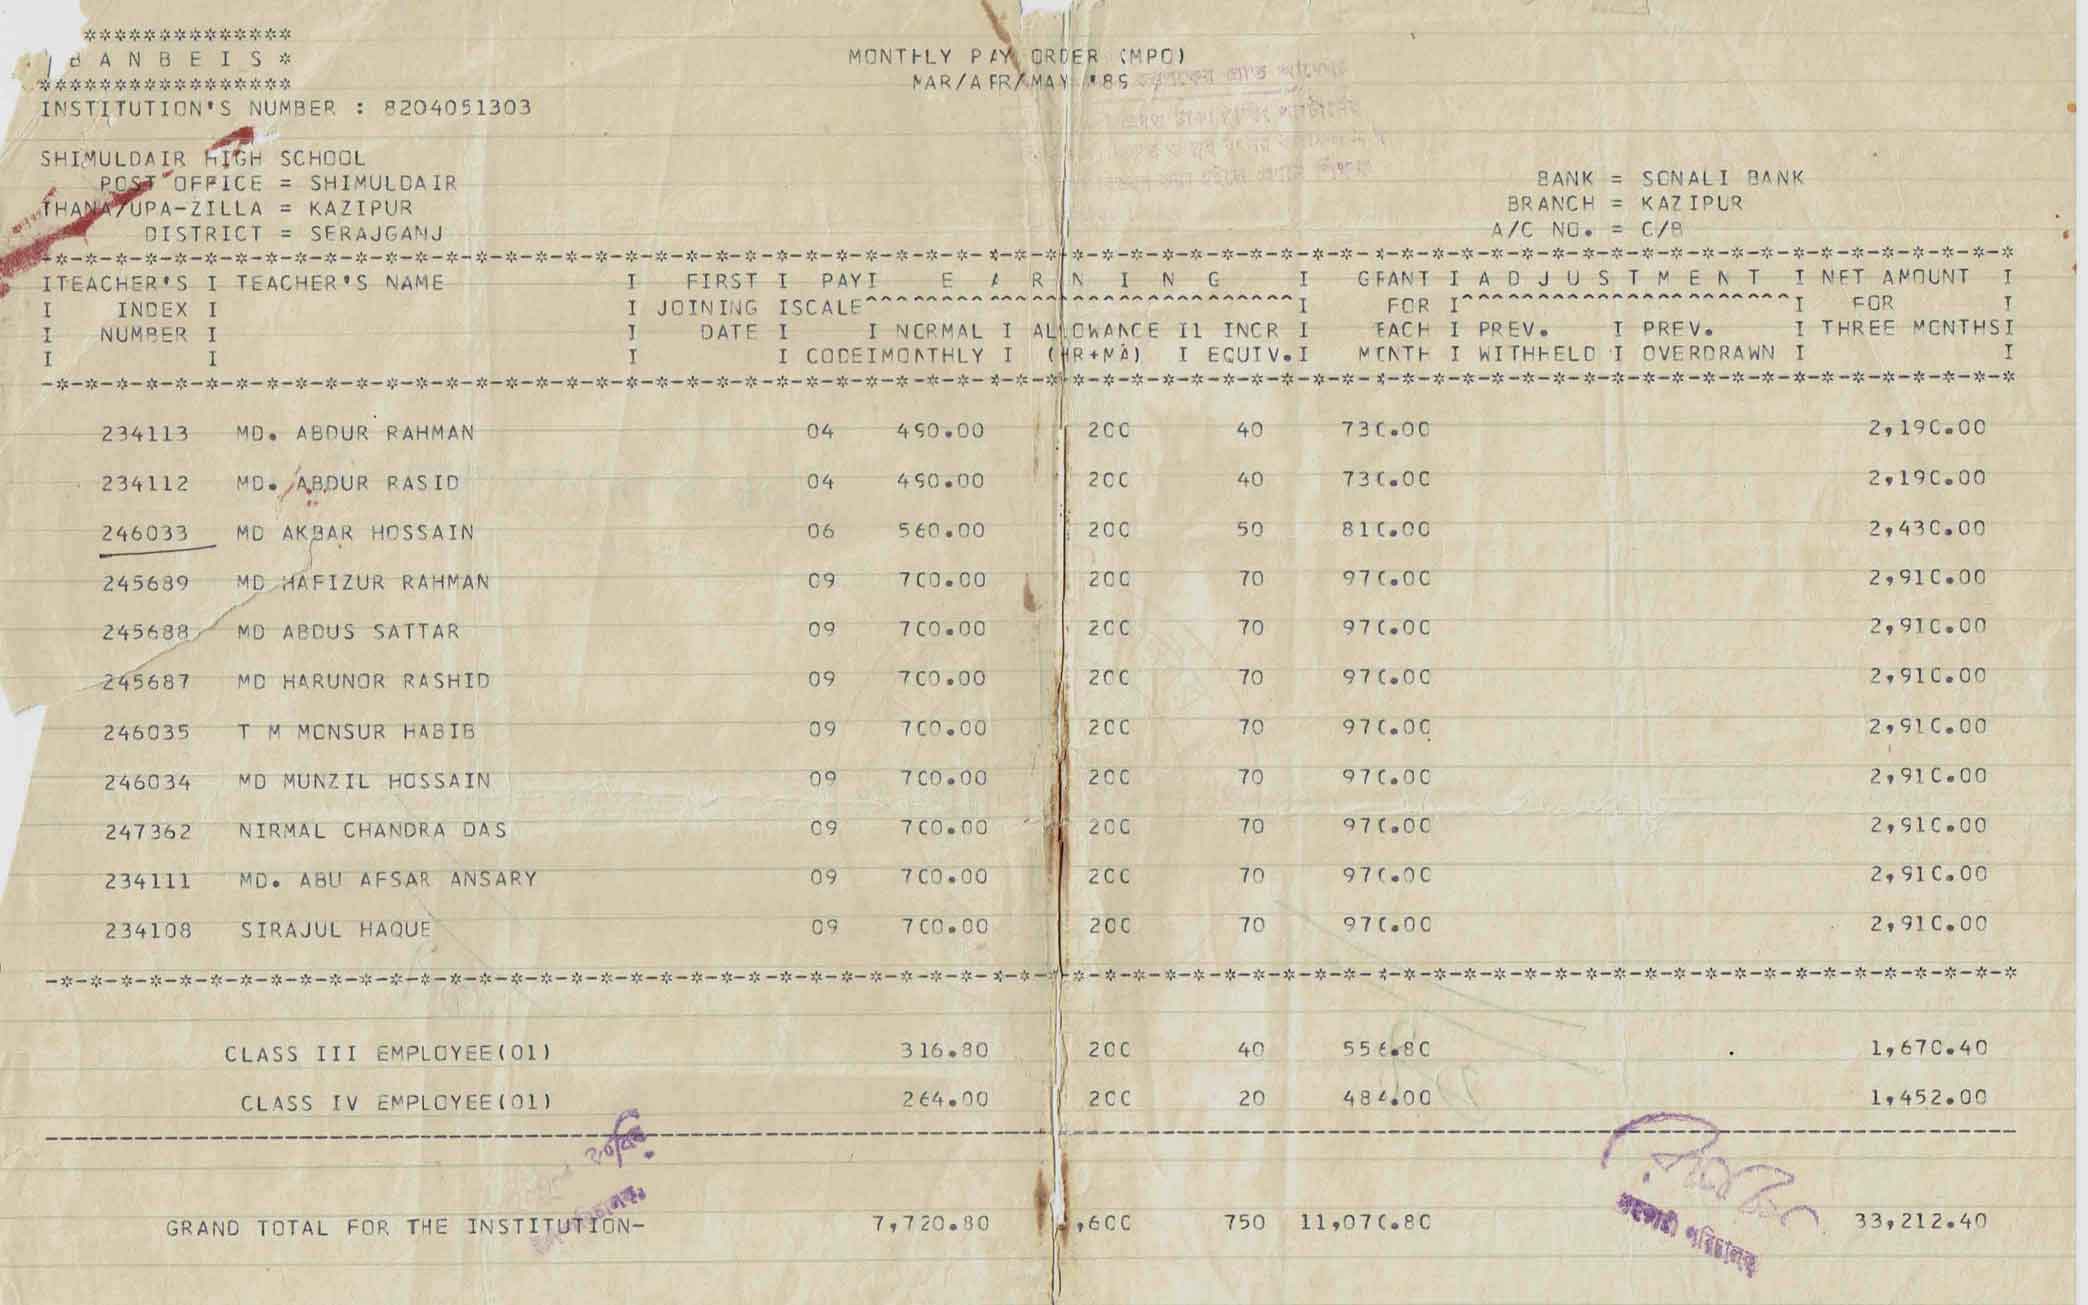 **************
B A N B E I S *
*****************
INSTITUTION'S NUMBER : 8204051303
MONTHLY PAY ORDER (MPO)
MAR/APR/MAY '85
SHIMULDAIR HIGH SCHOOL
POST OFFICE = SHIMULDAIR
THANA/UPA-ZILLA = KAZIPUR
DISTRICT = SERAJGANJ
BANK = SONALI BANK
BRANCH = KAZIPUR
A/C NO. = C/8
ITEACHER'S I TEACHER'S NAME I FIRST I PAYI E A R N I N G I GRANT I A D J U S T M E N T I NET AMOUNT I
I INDEX I I JOINING ISCALE^^^^^^^^^^^^^^^^^^^^^^^^^^^^^I FOR I^^^^^^^^^^^^^^^^^^^^^^I FOR I
I NUMBER I I DATE I I NORMAL I ALLOWANCE I1 INCR I EACH I PREV. I PREV. I THREE MONTHSI
I I I I CODEIMONTHLY I (HR+MA) I EQUIV.I MONTH I WITHHELD I OVERDRAWN I I
234113 MD. ABDUR RAHMAN 04 490.00 200 40 730.00 2,190.00
234112 MD. ABDUR RASID 04 490.00 200 40 730.00 2,190.00
246033 MD AKBAR HOSSAIN 06 560.00 200 50 810.00 2,430.00
245689 MD HAFIZUR RAHMAN 09 700.00 200 70 970.00 2,910.00
245688 MD ABDUS SATTAR 09 700.00 200 70 970.00 2,910.00
245687 MD HARUNOR RASHID 09 700.00 200 70 970.00 2,910.00
246035 T M MONSUR HABIB 09 700.00 200 70 970.00 2,910.00
246034 MD MUNZIL HOSSAIN 09 700.00 200 70 970.00 2,910.00
247362 NIRMAL CHANDRA DAS 09 700.00 200 70 970.00 2,910.00
234111 MD. ABU AFSAR ANSARY 09 700.00 200 70 970.00 2,910.00
234108 SIRAJUL HAQUE 09 700.00 200 70 970.00 2,910.00
CLASS III EMPLOYEE(01) 316.80 200 40 556.80 1,670.40
CLASS IV EMPLOYEE(01) 264.00 200 20 484.00 1,452.00
GRAND TOTAL FOR THE INSTITUTION- 7,720.80 ,600 750 11,070.80 33,212.40